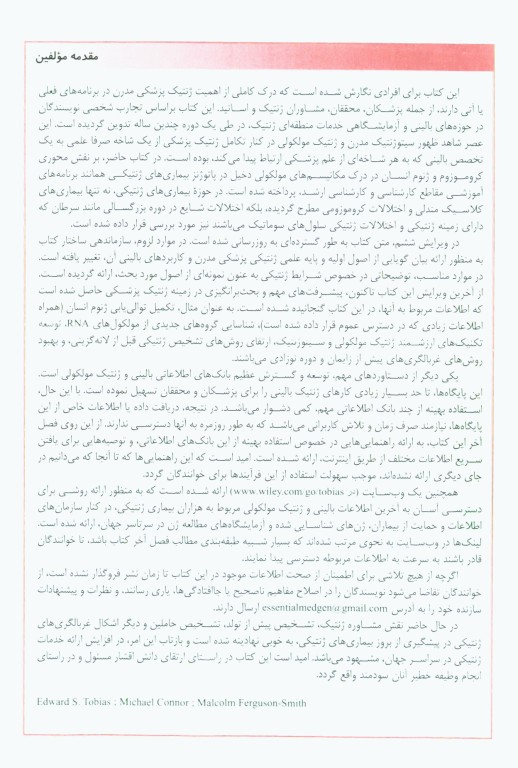 مقدمه مؤلفین
این کتاب برای افرادی نگارش شده است که درک کاملی از اهمیت ژنتیک پزشکی مدرن در برنامه‌های فعلی
یا آتی دارند، از جمله پزشکان، محققان، مشاوران ژنتیک و اساتید. این کتاب براساس تجارب شخصی نویسندگان
در حوزه‌های بالینی و آزمایشگاهی خدمات منطقه‌ای ژنتیک، در طی یک دوره چندین ساله تدوین گردیده است. این
عصر شاهد ظهور سیتوژنتیک مدرن و ژنتیک مولکولی در کنار تکامل ژنتیک پزشکی از یک شاخه صرفا علمی به یک
تخصص بالینی که به هر شاخه‌ای از علم پزشکی ارتباط پیدا می‌کند، بوده است. در کتاب حاضر، بر نقش محوری
کروموزوم و ژنوم انسان در درک مکانیسم‌های مولکولی دخیل در پاتوژنز بیماری‌های ژنتیکی همانند برنامه‌های
آموزشی مقاطع کارشناسی و کارشناسی ارشد، پرداخته شده است. در حوزهٔ بیماری‌های ژنتیکی، نه تنها بیماری‌های
کلاسیک مندلی و اختلالات کروموزومی مطرح گردیده، بلکه اختلالات شایع در دوره بزرگسالی مانند سرطان که
دارای زمینه ژنتیکی و اختلالات ژنتیکی سلول‌های سوماتیک می‌باشند نیز مورد بررسی قرار داده شده است.
در ویرایش ششم، متن کتاب به طور گسترده‌ای به روزرسانی شده است. در موارد لزوم، سازماندهی ساختار کتاب
به منظور ارائه بیان گویایی از اصول اولیه و پایه علمی ژنتیک پزشکی مدرن و کاربردهای بالینی آن، تغییر یافته است.
در موارد مناسب، توضیحاتی در خصوص شرایط ژنتیکی به عنون نمونه‌ای از اصول مورد بحث، ارائه گردیده است.
از آخرین ویرایش این کتاب تاکنون، پیشرفت‌های مهم و بحث‌برانگیزی در زمینه ژنتیک پزشکی حاصل شده است
که اطلاعات مربوط به آنها، در این کتاب گنجانیده شده است. به عنوان مثال، تکمیل توالی‌یابی ژنوم انسان (همراه
اطلاعات زیادی که در دسترس عموم قرار داده شده است)، شناسایی گروه‌های جدیدی از مولکول‌های RNA، توسعه
تکنیک‌های ارزشمند ژنتیک مولکولی و سیتوژنتیک، ارتقای روش‌های تشخیص ژنتیکی قبل از لانه‌گزینی، و بهبود
روش‌های غربالگری‌های پیش از زایمان و دوره نوزادی می‌باشند.
یکی دیگر از دستاوردهای مهم، توسعه و گسترش عظیم بانک‌های اطلاعاتی بالینی و ژنتیک مولکولی است.
این پایگاه‌ها، تا حد بسیار زیادی کارهای ژنتیک بالینی را برای پزشکان و محققان تسهیل نموده است. با این حال،
استفاده بهینه از چند بانک اطلاعاتی مهم، کمی دشوار می‌باشد. در نتیجه، دریافت داده یا اطلاعات خاص از این
پایگاه‌ها، نیازمند صرف زمان و تلاش کاربرانی می‌باشد که به طور روزمره به آنها دسترسی ندارند. از این روی فصل
آخر این کتاب، به ارائه راهنمایی‌هایی در خصوص استفاده بهینه از این بانک‌های اطلاعاتی، و توصیه‌هایی برای یافتن
سریع اطلاعات مختلف از طریق اینترنت، ارائه شده است. امید است که این راهنمایی‌ها که تا آنجا که می‌دانیم در
جای دیگری ارائه نشده‌اند، موجب سهولت استفاده از این فرآیندها برای خوانندگان گردد.
همچنین یک وب‌سایت (در www.wiley.com/go/tobias) ارائه شده است که به منظور ارائه روشی برای
دسترسی آسان به آخرین اطلاعات بالینی و ژنتیک مولکولی مربوط به هزاران بیماری ژنتیکی، در کنار سازمان‌های
اطلاعات و حمایت از بیماران، ژن‌های شناسایی شده و آزمایشگاه‌های مطالعه ژن در سرتاسر جهان، ارائه شده است.
لینک‌ها در وب‌سایت به نحوی مرتب شده‌اند که بسیار شبیه طبقه‌بندی مطالب فصل آخر کتاب باشد، تا خوانندگان
قادر باشند به سرعت به اطلاعات مربوطه دسترسی پیدا نمایند.
اگرچه از هیچ تلاشی برای اطمینان از صحت اطلاعات موجود در این کتاب تا زمان نشر فروگذار نشده است، از
خوانندگان تقاضا می‌شود نویسندگان را در اصلاح مفاهیم ناصحیح یا جاافتادگی‌ها، یاری رسانند، و نظرات و پیشنهادات
سازنده خود را به آدرس essentialmedgen@gmail.com ارسال دارند.
در حال حاضر نقش مشاوره ژنتیک، تشخیص پیش از تولد، تشخیص حاملین و دیگر اشکال غربالگری‌های
ژنتیکی در پیشگیری از بروز بیماری‌های ژنتیکی، به خوبی نهادینه شده است و بازتاب این امر، در افزایش ارائه خدمات
ژنتیکی در سراسر جهان، مشهود می‌باشد. امید است این کتاب در راستای ارتقای دانش اقشار مسئول و در راستای
انجام وظیفه خطیر آنان سودمند واقع گردد.
Edward S. Tobias ; Michael Connor ; Malcolm Ferguson-Smith